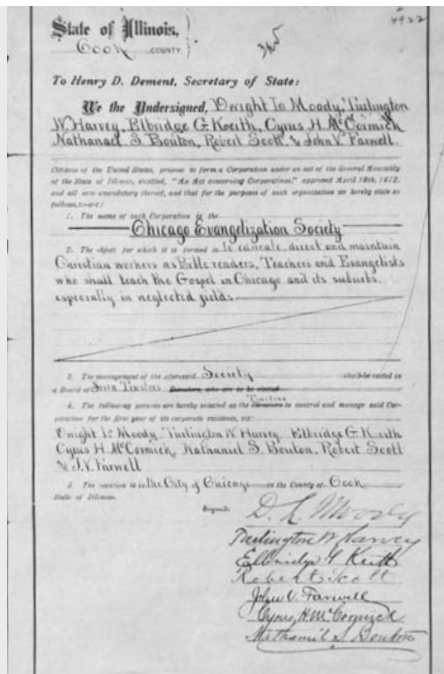 4922
State of Illinois,
Cook COUNTY
To Henry D. Dement, Secretary of State:
We the Undersigned, Dwight L. Moody, Turlington
W. Harvey, Elbridge G. Keith, Cyrus H. McCormick
Nathanael S. Bouton, Robert Scott, & John V. Farwell
Citizens of the United States, propose to form a Corporation under an act of the General Assembly
of the State of Illinois, entitled, "An Act concerning Corporations," approved April 18th, 1872,
and all acts amendatory thereof; and that for the purposes of such organization we hereby state as
follows, to-wit:
1. The name of such Corporation is the
Chicago Evangelization Society
2. The object for which it is formed is to educate, direct and maintain
Christian workers as Bible readers, Teachers and Evangelists
who shall teach the Gospel in Chicago and its suburbs,
especially in neglected fields
3. The management of the aforesaid Society shall be vested in
a Board of Seven Trustees Directors, who are to be elected
Trustees
4. The following persons are hereby selected as the Directors to control and manage said Cor-
poration for the first year of its corporate existence, viz:
Dwight L. Moody, Turlington W. Harvey, Elbridge G. Keith
Cyrus H. McCormick, Nathanael S. Bouton, Robert Scott
& J. V. Farwell
5. The location is in the City of Chicago in the County of Cook
State of Illinois.
Signed:
D. L. Moody
Turlington W Harvey
Elbridge G Keith
Robert Scott
John V. Farwell
Cyrus H McCormick
Nathaniel S. Bouton